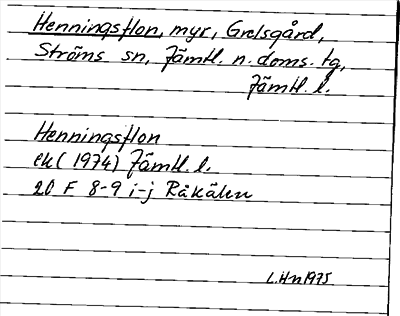 Henningsflon, myr, Grelsgård,
Ströms sn, Jämtl. n. doms. tg,
Jämtl. l.
Henningsflon
ek (1974) Jämtl. l.
20 F 8-9 i-j Råkälen
L.Hn 1975